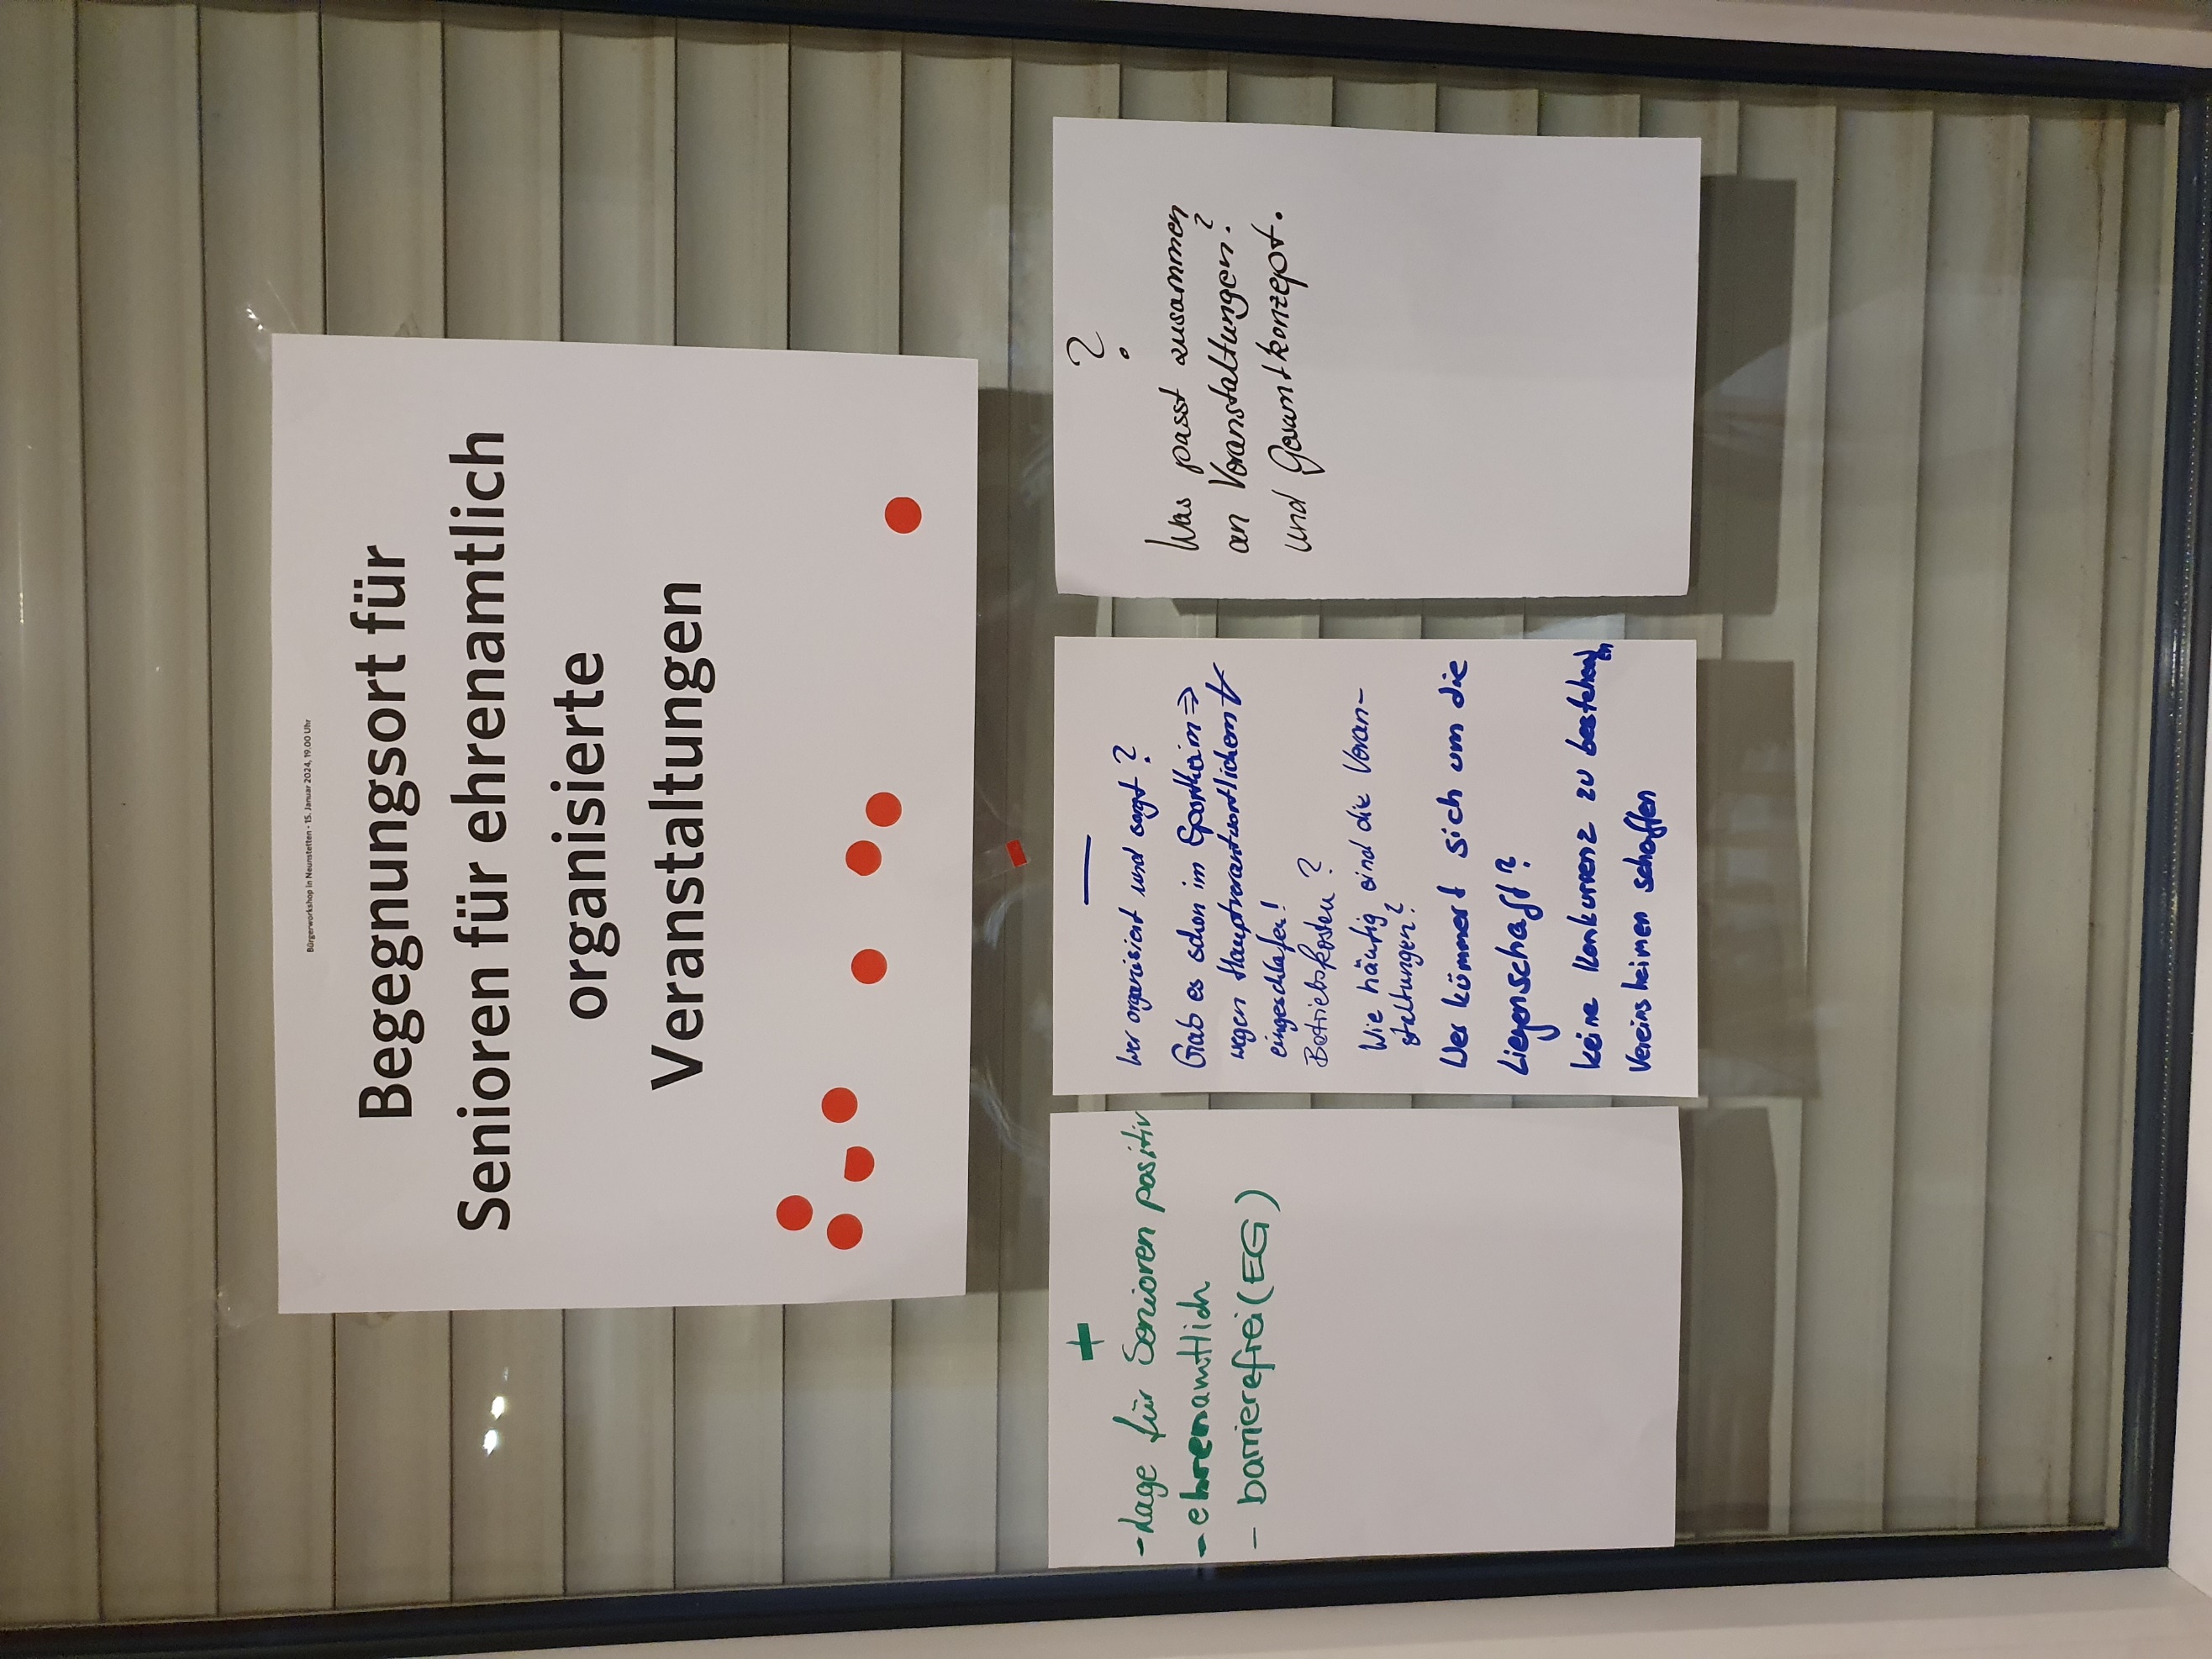 Bürgerworkshop in Neunstetten - 15. Januar 2024, 19.00 Uhr
Begegnungsort für
Senioren für ehrenamtlich
organisierte
Veranstaltungen
+
- Lage für Senioren positiv
- ehrenamtlich
- barrierefrei (EG)
—
Wer organisiert und sorgt?
Gab es schon im Sportheim ⇒
wegen Hauptverantwortlichem
eingeschlafen!
Betriebskosten?
Wie häufig sind die Veran-
staltungen?
Wer kümmert sich um die
Liegenschaft?
keine Konkurrenz zu bestehenden
Vereinsheimen schaffen
?
Was passt zusammen
an Veranstaltungen?
und Gesamtkonzept.